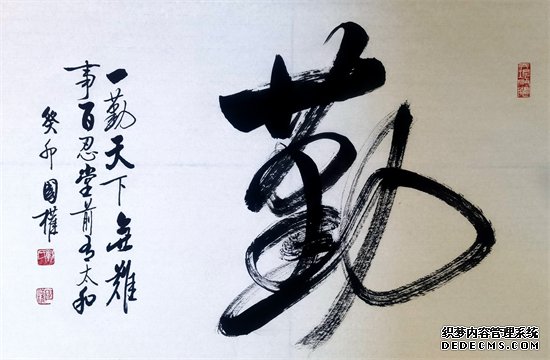 勤
一勤天下無難
事百忍堂前有太和
癸卯國權
织梦内容管理系统
DEDECMS.COM